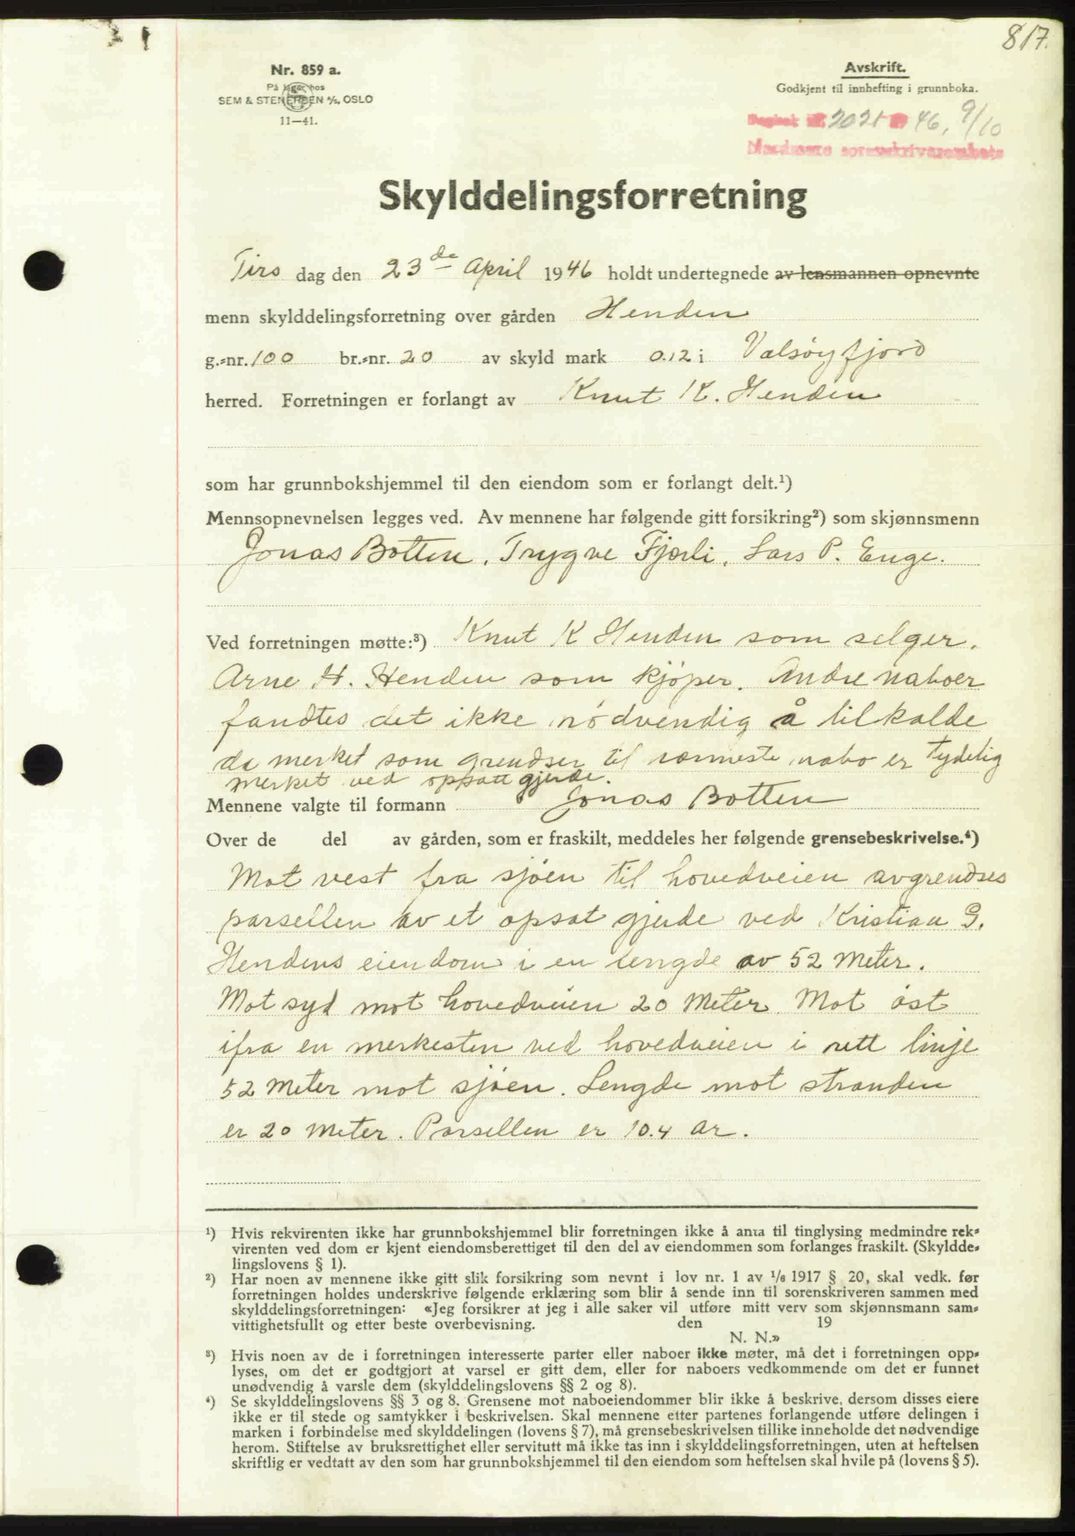 817.
Nr. 859 a.
På lager hos
SEM & STENERSEN A/S, OSLO
11—41.
Avskrift.
Godkjent til innhefting i grunnboka.
Dagbok nr. 2021 19 46, 9/10
Nordmøre sorenskriverembete
Skylddelingsforretning
Tirs dag den 23 de April 1946 holdt undertegnede av lensmannen opnevnte
menn skylddelingsforretning over gården Henden
g.-nr. 100 br.-nr. 20 av skyld mark 0.12 i Valsøyfjord
herred. Forretningen er forlangt av Knut K. Henden
som har grunnbokshjemmel til den eiendom som er forlangt delt.¹)
Mennsopnevnelsen legges ved. Av mennene har følgende gitt forsikring²) som skjønnsmenn
Jonas Botten, Trygve Fjærli, Lars P. Enge.
Ved forretningen møtte:³) Knut K Henden som selger.
Arne H. Henden som kjøper. Andre naboer
fandtes det ikke nødvendig å tilkalde
da merket som grendser til nærmeste nabo er tydelig
merket ved oppsatt gjerde.
Mennene valgte til formann Jonas Botten
Over de del av gården, som er fraskilt, meddeles her følgende grensebeskrivelse.⁴)
Mot vest fra sjøen til hovedveien avgrendses
parsellen av et opsat gjerde ved Kristian G.
Hendens eiendom i en lengde av 52 meter.
Mot syd mot hovedveien 20 meter. Mot øst
ifra en merkesten ved hovedveien i rett linje
52 meter mot sjøen. Lengde mot stranden
er 20 meter. Parsellen er 10.4 ar.
¹) Hvis rekvirenten ikke har grunnbokshjemmel blir forretningen ikke å anta til tinglysing medmindre rek-
virenten ved dom er kjent eiendomsberettiget til den del av eiendommen som forlanges fraskilt. (Skyldde-
lingslovens § 1).
²) Har noen av mennene ikke gitt slik forsikring som nevnt i lov nr. 1 av 1/6 1917 § 20, skal vedk. før
forretningen holdes underskrive følgende erklæring som blir å sende inn til sorenskriveren sammen med
skylddelingsforretningen: «Jeg forsikrer at jeg i alle saker vil utføre mitt verv som skjønnsmann sam-
vittighetsfullt og etter beste overbevisning. den 19
N. N.»
³) Hvis noen av de i forretningen interesserte parter eller naboer ikke møter, må det i forretningen opp-
lyses, om det er godtgjort at varsel er gitt dem, eller for naboers vedkommende om det er funnet
unødvendig å varsle dem (skylddelingslovens §§ 2 og 8).
⁴) Se skylddelingslovens §§ 3 og 8. Grensene mot naboeiendommer blir ikke å beskrive, dersom disses eiere
ikke er til stede og samtykker i beskrivelsen. Skal mennene etter partenes forlangende utføre delingen i
marken i forbindelse med skylddelingen (lovens § 7), må grensebeskrivelsen tillike inneholde det nødvendige
herom. Stiftelse av bruksrettighet eller servitutt må ikke tas inn i skylddelingsforretningen, uten at heftelsen
skriftlig er vedtatt av den som har grunnbokshjemmel til den eiendom som heftelsen skal hvile på (lovens § 5).